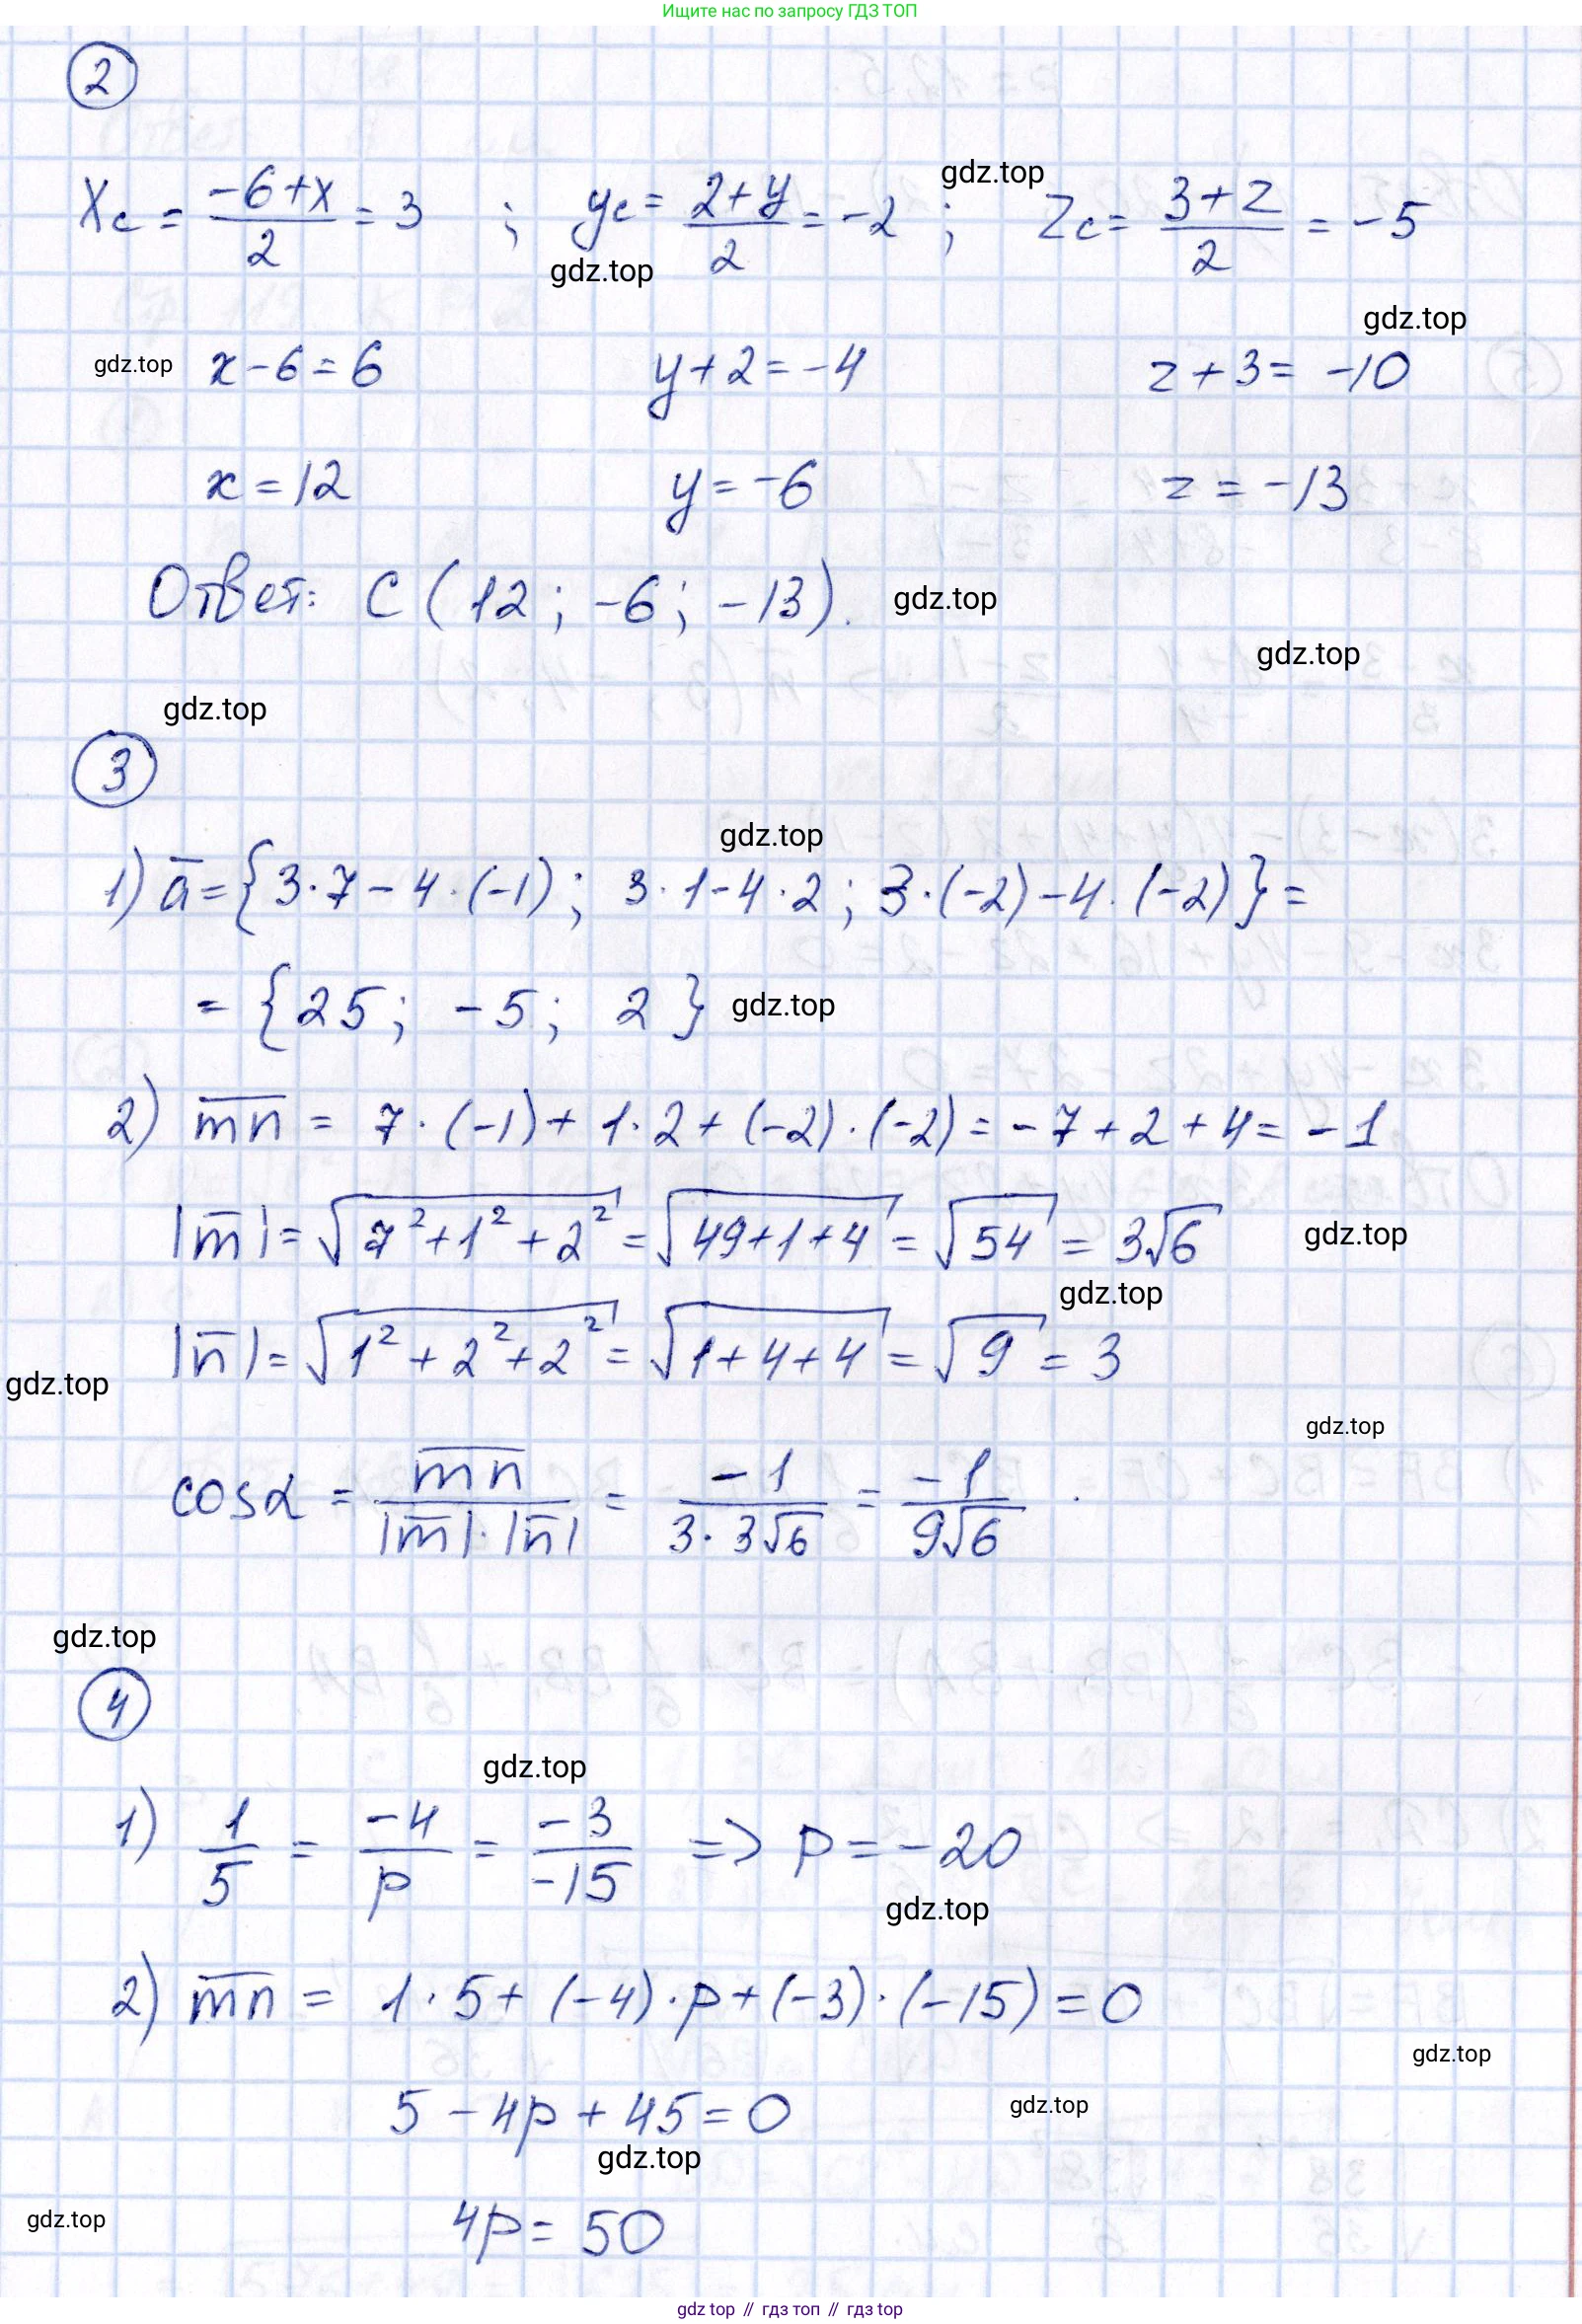 Ищите нас по запросу ГДЗ ТОП
2
Xc = (-6+x)/2 = 3 ; yc = (2+y)/2 = -2 ; Zc = (3+z)/2 = -5
gdz.top
gdz.top
gdz.top
gdz.top x-6=6 y+2=-4 z+3=-10
x=12 y=-6 z=-13
Ответ: C(12; -6; -13). gdz.top
gdz.top
gdz.top
3
gdz.top
1) a̅={3·7-4·(-1); 3·1-4·2; 3·(-2)-4·(-2)}=
={25; -5; 2} gdz.top
2) m̅n̅ = 7·(-1)+1·2+(-2)·(-2)=-7+2+4=-1
|m̅|=√(7²+1²+2²)=√(49+1+4)=√54=3√6 gdz.top
gdz.top
|n̅|=√(1²+2²+2²)=√(1+4+4)=√9=3
gdz.top
gdz.top
cosα = m̅n̅/(|m̅|·|n̅|) = -1/(3·3√6) = -1/(9√6) .
gdz.top
4
gdz.top
1) 1/5 = -4/p = -3/-15 => p=-20
gdz.top
2) m̅n̅ = 1·5+(-4)·p+(-3)·(-15)=0
gdz.top
5-4p+45=0 gdz.top
gdz.top
gdz.top 4p=50
gdz top // гдз топ // гдз top